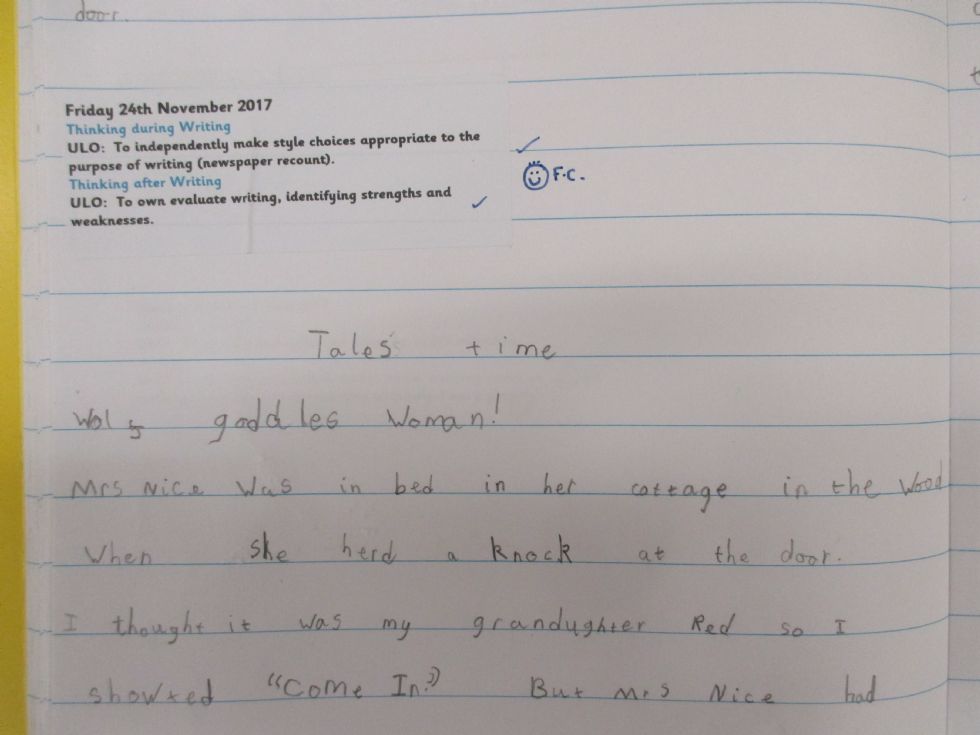 door.
Friday 24th November 2017
Thinking during Writing
ULO: To independently make style choices appropriate to the
purpose of writing (newspaper recount).
Thinking after Writing
ULO: To own evaluate writing, identifying strengths and
weaknesses.
F.C.
Tales time
Wolf goddles Woman!
Mrs Nice Was in bed in her cottage in the Wood
When She herd a knock at the door.
I thought it was my grandughter Red so I
showted "Come In." But Mrs Nice had